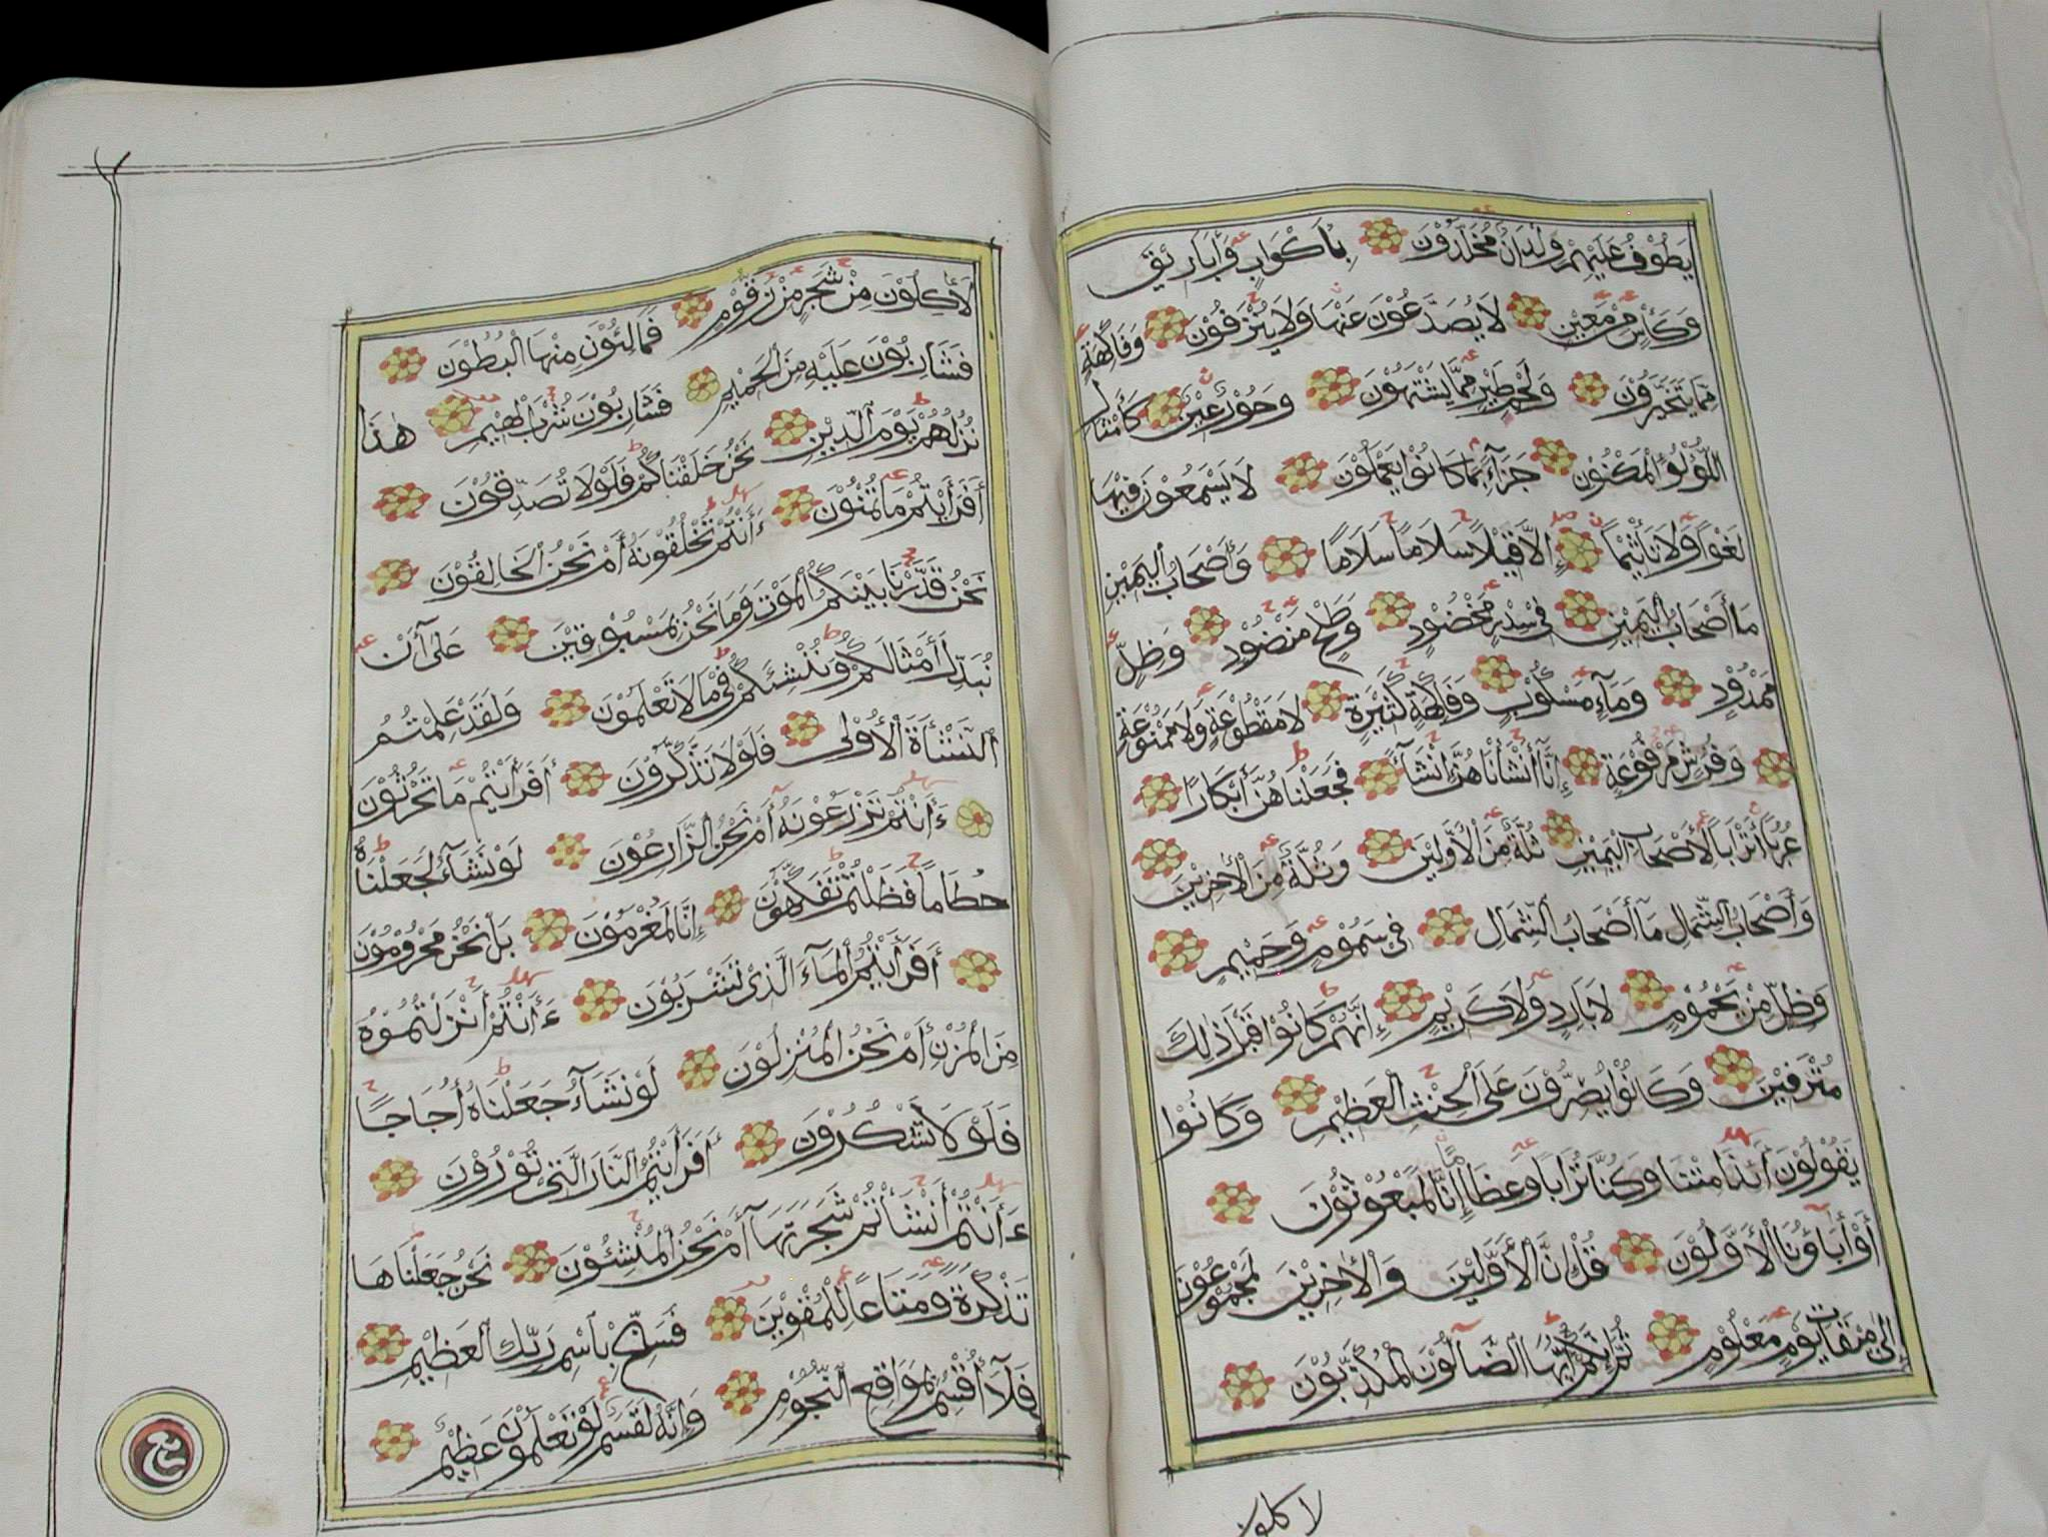 يَطُوفُ عَلَيْهِمْ وِلْدَانٌ مُخَلَّدُوْنَ بِأَكْوَابٍ وَأَبَارِيْقَ
وَكَأْسٍ مِنْ مَعِيْنٍ لَا يُصَدَّعُوْنَ عَنْهَا وَلَا يُنْزِفُوْنَ وَفَاكِهَةٍ
مِمَّا يَتَخَيَّرُوْنَ وَلَحْمِ طَيْرٍ مِمَّا يَشْتَهُوْنَ وَحُوْرٌ عِيْنٌ كَأَمْثَالِ
اللُّؤْلُؤِ الْمَكْنُوْنِ جَزَآءً بِمَا كَانُوْا يَعْمَلُوْنَ لَا يَسْمَعُوْنَ فِيْهَا
لَغْوًا وَلَا تَأْثِيْمًا إِلَّا قِيْلًا سَلَامًا سَلَامًا وَأَصْحَابُ الْيَمِيْنِ
مَا أَصْحَابُ الْيَمِيْنِ فِيْ سِدْرٍ مَخْضُوْدٍ وَطَلْحٍ مَنْضُوْدٍ وَظِلٍّ
مَمْدُوْدٍ وَمَآءٍ مَسْكُوْبٍ وَفَاكِهَةٍ كَثِيْرَةٍ لَا مَقْطُوْعَةٍ وَلَا مَمْنُوْعَةٍ
وَفُرُشٍ مَرْفُوْعَةٍ إِنَّآ أَنْشَأْنَاهُنَّ إِنْشَآءً فَجَعَلْنَاهُنَّ أَبْكَارًا
عُرُبًا أَتْرَابًا لِأَصْحَابِ الْيَمِيْنِ ثُلَّةٌ مِنَ الْأَوَّلِيْنَ وَثُلَّةٌ مِنَ الْآخِرِيْنَ
وَأَصْحَابُ الشِّمَالِ مَآ أَصْحَابُ الشِّمَالِ فِيْ سَمُوْمٍ وَحَمِيْمٍ
وَظِلٍّ مِنْ يَحْمُوْمٍ لَا بَارِدٍ وَلَا كَرِيْمٍ إِنَّهُمْ كَانُوْا قَبْلَ ذٰلِكَ
مُتْرَفِيْنَ وَكَانُوْا يُصِرُّوْنَ عَلَى الْحِنْثِ الْعَظِيْمِ وَكَانُوْا
يَقُوْلُوْنَ أَئِذَا مِتْنَا وَكُنَّا تُرَابًا وَعِظَامًا إِنَّا لَمَبْعُوْثُوْنَ
أَوَآبَاؤُنَا الْأَوَّلُوْنَ قُلْ إِنَّ الْأَوَّلِيْنَ وَالْآخِرِيْنَ لَمَجْمُوْعُوْنَ
إِلَى مِيْقَاتِ يَوْمٍ مَعْلُوْمٍ ثُمَّ إِنَّكُمْ أَيُّهَا الضَّآلُّوْنَ الْمُكَذِّبُوْنَ
لاكلون
لَآكِلُوْنَ مِنْ شَجَرٍ مِنْ زَقُّوْمٍ فَمَالِئُوْنَ مِنْهَا الْبُطُوْنَ
فَشَارِبُوْنَ عَلَيْهِ مِنَ الْحَمِيْمِ فَشَارِبُوْنَ شُرْبَ الْهِيْمِ هٰذَا
نُزُلُهُمْ يَوْمَ الدِّيْنِ نَحْنُ خَلَقْنَاكُمْ فَلَوْلَا تُصَدِّقُوْنَ
أَفَرَأَيْتُمْ مَا تُمْنُوْنَ ءَأَنْتُمْ تَخْلُقُوْنَهُ أَمْ نَحْنُ الْخَالِقُوْنَ
نَحْنُ قَدَّرْنَا بَيْنَكُمُ الْمَوْتَ وَمَا نَحْنُ بِمَسْبُوْقِيْنَ عَلَىٓ أَنْ
نُبَدِّلَ أَمْثَالَكُمْ وَنُنْشِئَكُمْ فِيْ مَا لَا تَعْلَمُوْنَ وَلَقَدْ عَلِمْتُمُ
النَّشْأَةَ الْأُوْلٰى فَلَوْلَا تَذَكَّرُوْنَ أَفَرَأَيْتُمْ مَا تَحْرُثُوْنَ
ءَأَنْتُمْ تَزْرَعُوْنَهُ أَمْ نَحْنُ الزَّارِعُوْنَ لَوْ نَشَآءُ لَجَعَلْنَاهُ
حُطَامًا فَظَلْتُمْ تَفَكَّهُوْنَ إِنَّا لَمُغْرَمُوْنَ بَلْ نَحْنُ مَحْرُوْمُوْنَ
أَفَرَأَيْتُمُ الْمَآءَ الَّذِيْ تَشْرَبُوْنَ ءَأَنْتُمْ أَنْزَلْتُمُوْهُ
مِنَ الْمُزْنِ أَمْ نَحْنُ الْمُنْزِلُوْنَ لَوْ نَشَآءُ جَعَلْنَاهُ أُجَاجًا
فَلَوْلَا تَشْكُرُوْنَ أَفَرَأَيْتُمُ النَّارَ الَّتِيْ تُوْرُوْنَ
ءَأَنْتُمْ أَنْشَأْتُمْ شَجَرَتَهَآ أَمْ نَحْنُ الْمُنْشِئُوْنَ نَحْنُ جَعَلْنَاهَا
تَذْكِرَةً وَمَتَاعًا لِلْمُقْوِيْنَ فَسَبِّحْ بِاسْمِ رَبِّكَ الْعَظِيْمِ
فَلَآ أُقْسِمُ بِمَوَاقِعِ النُّجُوْمِ وَإِنَّهُ لَقَسَمٌ لَوْ تَعْلَمُوْنَ عَظِيْمٌ